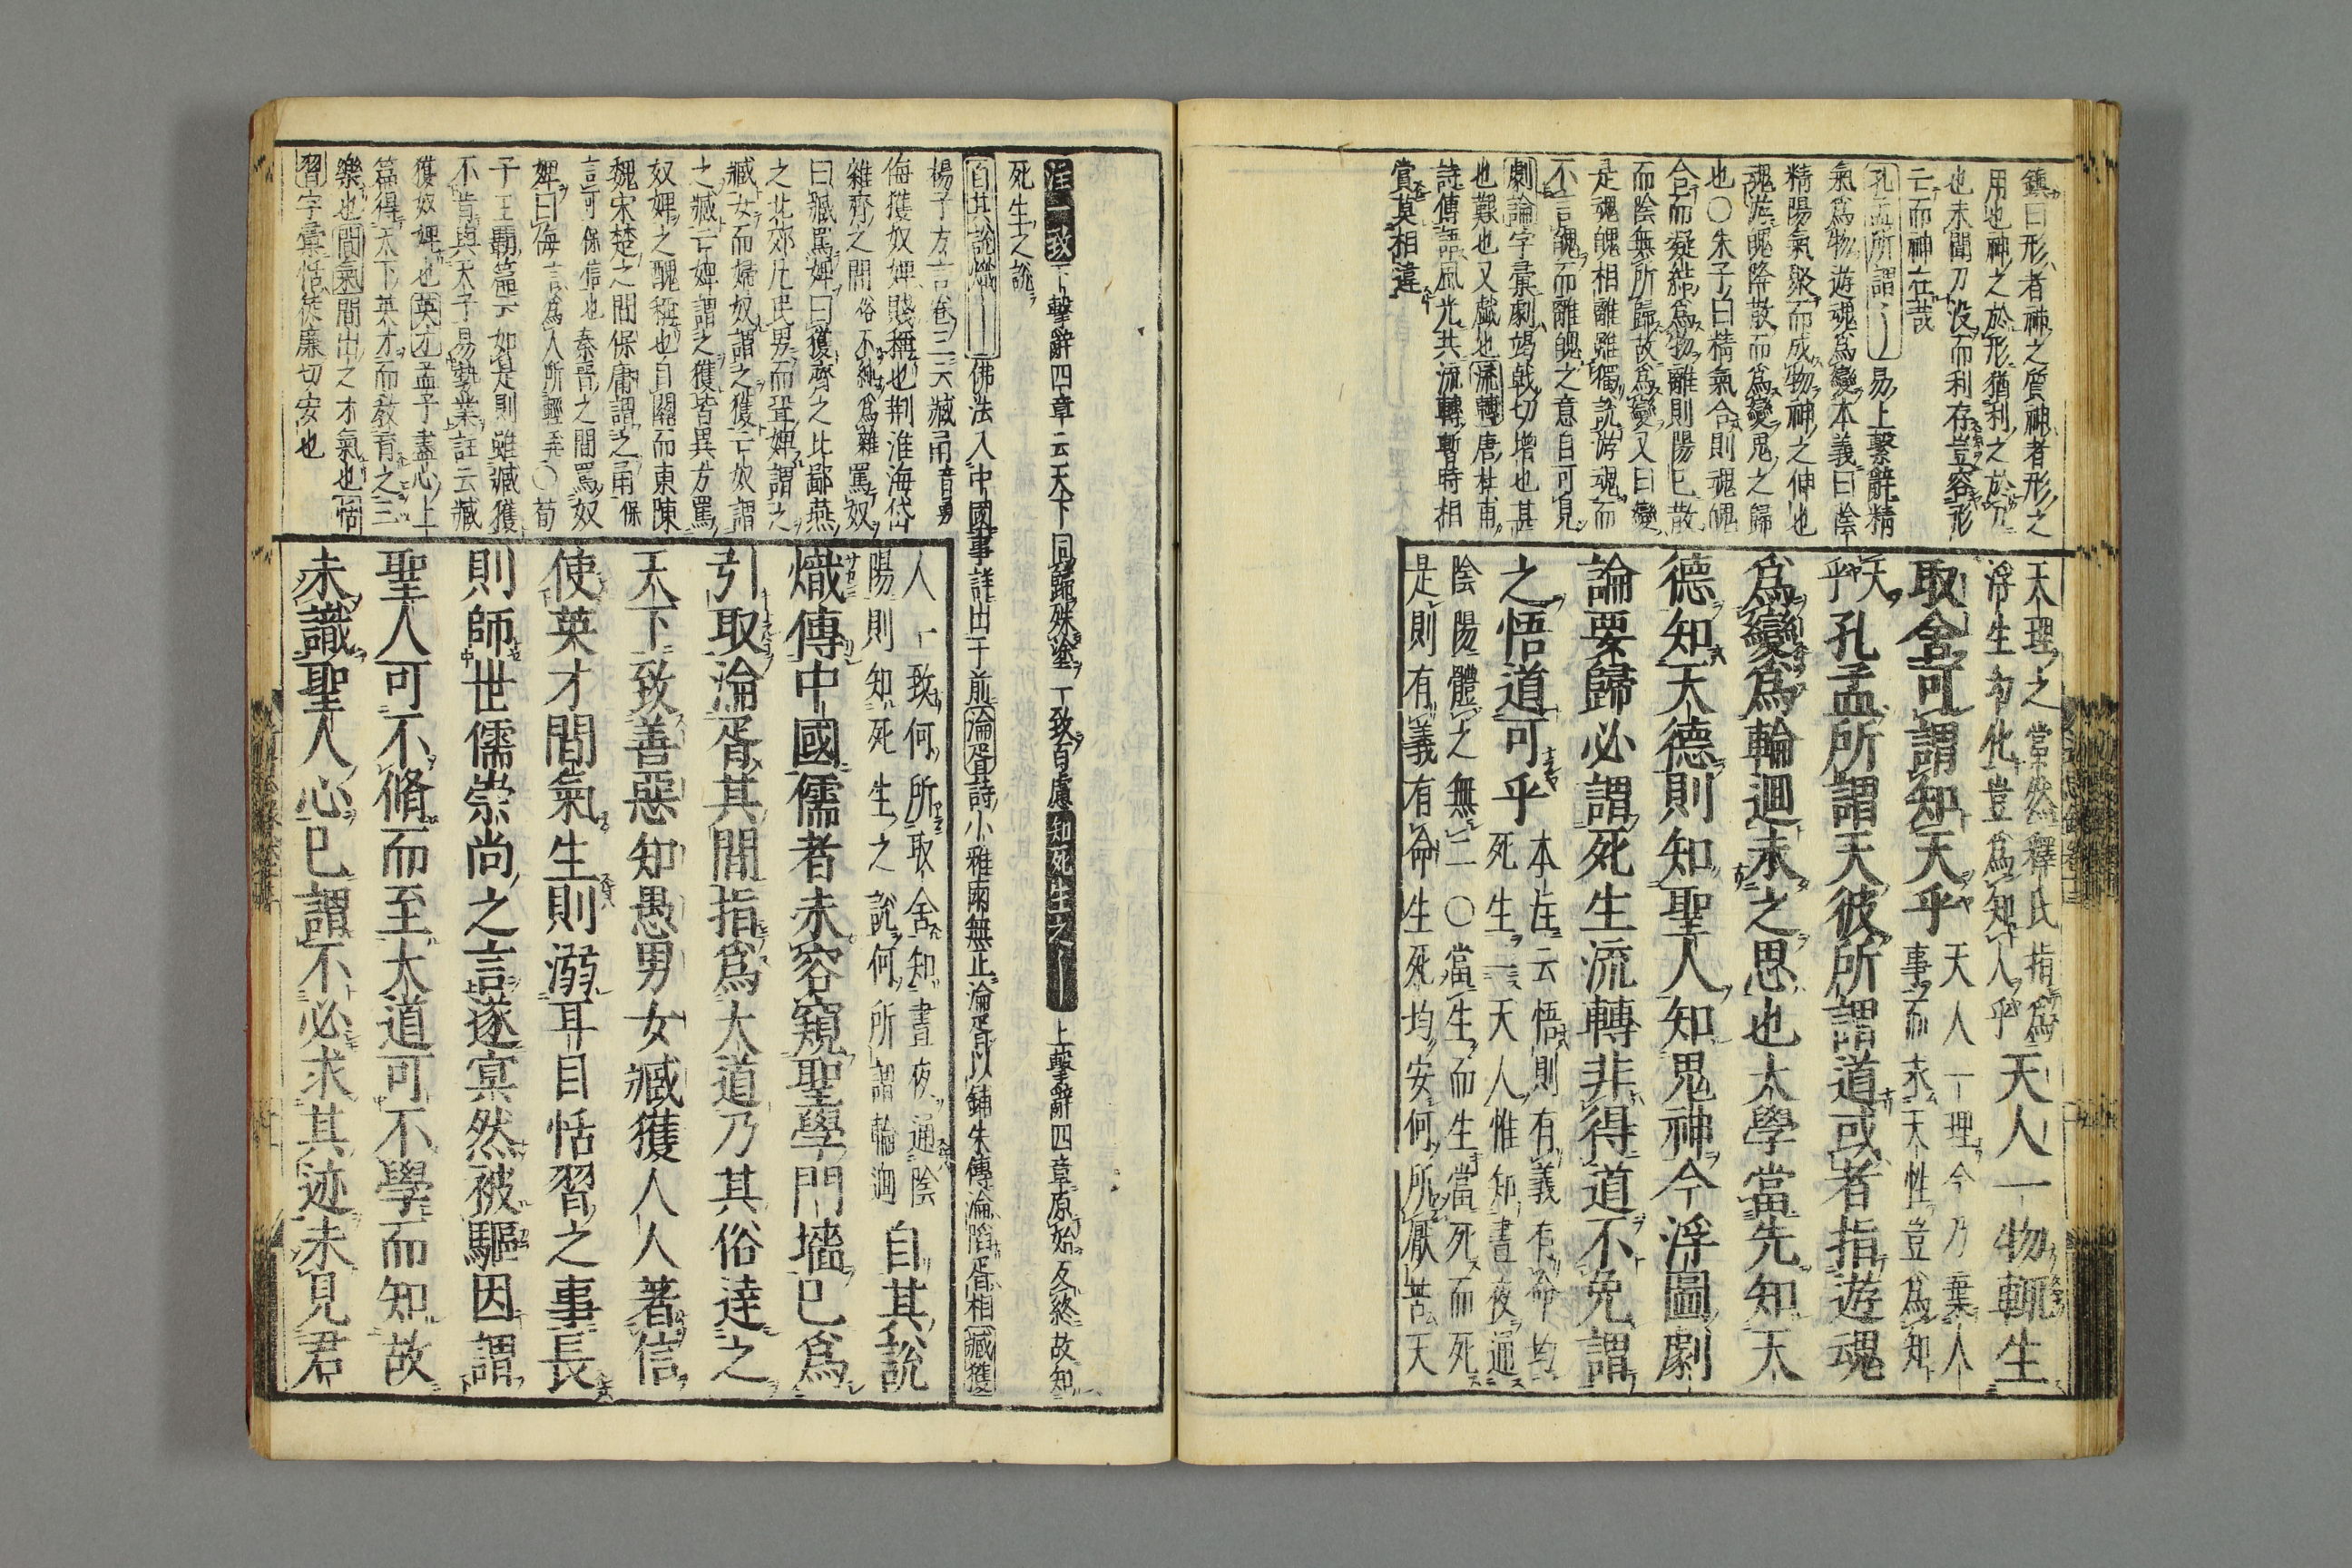 鎮曰形者神之質神者形之
用也神之於形猶利之於刀
也未聞刀没而利存豈容形
亡而神在哉
孔孟所謂｜易上繫辭精
氣爲物遊魂爲變本義曰陰
精陽氣聚而成物神之伸也
魂游魄降散而爲變鬼之歸
也○朱子曰精氣合則魂魄
合而凝結爲物離則陽已散
而陰無所歸故爲變又曰變
是魂魄相離雖獨說游魂而
不言魄而離魄之意自可見
劇論字彙劇竭戟切增也甚
也艱也又戯也流轉唐杜甫
詩傳語風光共流轉暫時相
賞莫相違
天理之當然釋氏指爲
浮生幻化豈爲知人乎天人一物輒生
取舍可謂知天乎天人一理今乃棄人
事而求天性豈爲知
天
乎孔孟所謂天彼所謂道或者指遊魂
爲變爲輪廻未之思也大學當先知天
德知天德則知聖人知鬼神今浮圖劇
論要歸必謂死生流轉非得道不免謂
之悟道可乎本註云悟則有義有命均
死生一天人惟知晝夜通
陰陽體之無二○當生而生當死而死
是則有義有命生死均安何所厭苦天
注一致下繫辭四章云天下同歸殊塗一致百慮知死生之｜上繫辭四章原始反終故知
死生之說
自其說熾｜佛法入中國事詳出于前淪胥詩小雅雨無止淪胥以鋪朱傳淪陷胥相臧獲
楊子方言卷三云臧甬音勇
侮獲奴婢賤稱也荆淮海岱
雜齊之間俗不純爲雜罵奴
曰臧罵婢曰獲齊之北鄙燕
之北郊凡民男而聟婢謂之
臧女而婦奴謂之獲亡奴謂
之臧亡婢謂之獲皆異方罵
奴婢之醜稱也自關而東陳
魏宋楚之間保庸謂之甬保
言可保信也秦晉之間罵奴
婢曰侮言爲人所輕弄○荀
子王霸篇云如是則雖臧獲
不肯與天子易埶業註云臧
獲奴婢也英才孟子盡心上
篇得天下英才而教育之三
樂也間氣間出之才氣也恬
習字彙恬徒廉切安也
人一致何所取舍知晝夜通陰
陽則知死生之說何所謂輪廻自其說
熾傳中國儒者未容窺聖學門墻已爲
引取淪胥其間指爲大道乃其俗達之
天下致善惡知愚男女臧獲人人著信
使英才間氣生則溺耳目恬習之事長
則師世儒崇尚之言遂冥然被驅因謂
聖人可不脩而至大道可不學而知故
未識聖人心已謂不必求其迹未見君